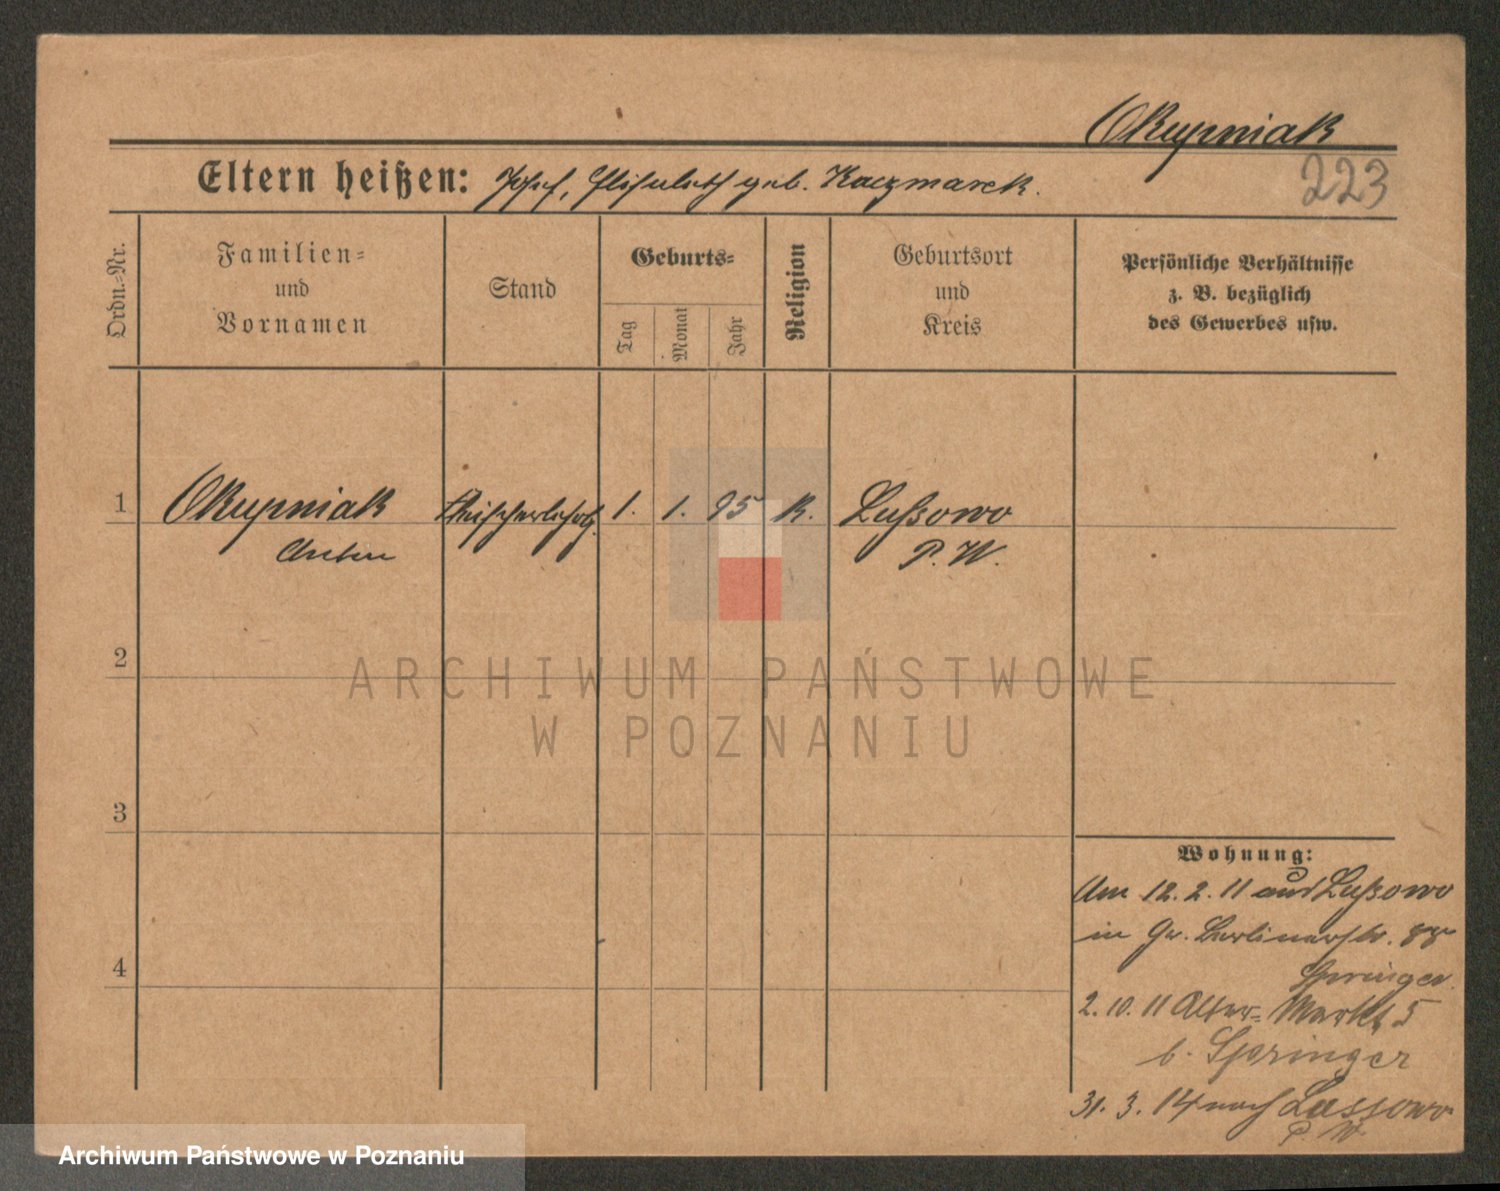 Okupniak
Eltern heißen: Josef, Elisabeth geb. Kaczmarek.
223
Ordn.-Nr.
Familien-
und
Vornamen
Stand
Geburts-
Tag
Monat
Jahr
Religion
Geburtsort
und
Kreis
Persönliche Verhältnisse
z. B. bezüglich
des Gewerbes usw.
1 Okupniak Fleischerlehrlg. 1. 1. 95 K. Lußowo
Anton P. W.
2
ARCHIWUM PAŃSTWOWE
W POZNANIU
3
Wohnung:
Am 12.2.11 aus Lußowo
in Gr. Berlinerstr.
4
Springer
2.10.11 Alter-Markt 5
b. Springer
31.3.14 nach Lussowo
P. W.
Archiwum Państwowe w Poznaniu